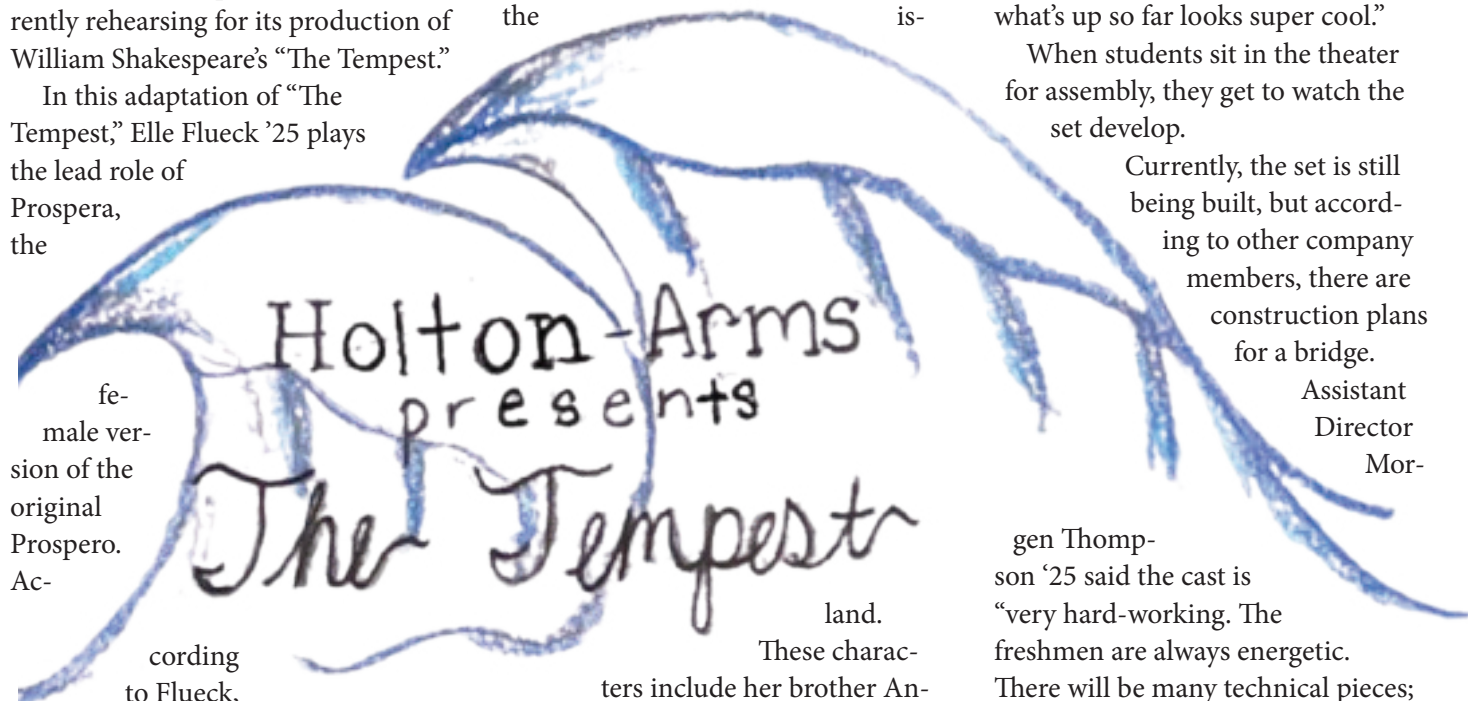 rently rehearsing for its production of
William Shakespeare’s “The Tempest.”
In this adaptation of “The
Tempest,” Elle Flueck ’25 plays
the lead role of
Prospera,
the
fe-
male ver-
sion of the
original
Prospero.
Ac-
cording
to Flueck,
the is-
land.
These charac-
ters include her brother An-
Holton-Arms
presents
The Tempest
what’s up so far looks super cool.”
When students sit in the theater
for assembly, they get to watch the
set develop.
Currently, the set is still
being built, but accord-
ing to other company
members, there are
construction plans
for a bridge.
Assistant
Director
Mor-
gen Thomp-
son ‘25 said the cast is
“very hard-working. The
freshmen are always energetic.
There will be many technical pieces;